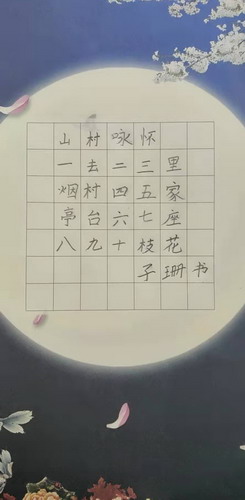 山村咏怀
一去二三里
烟村四五家
亭台六七座
八九十枝花
子珊书